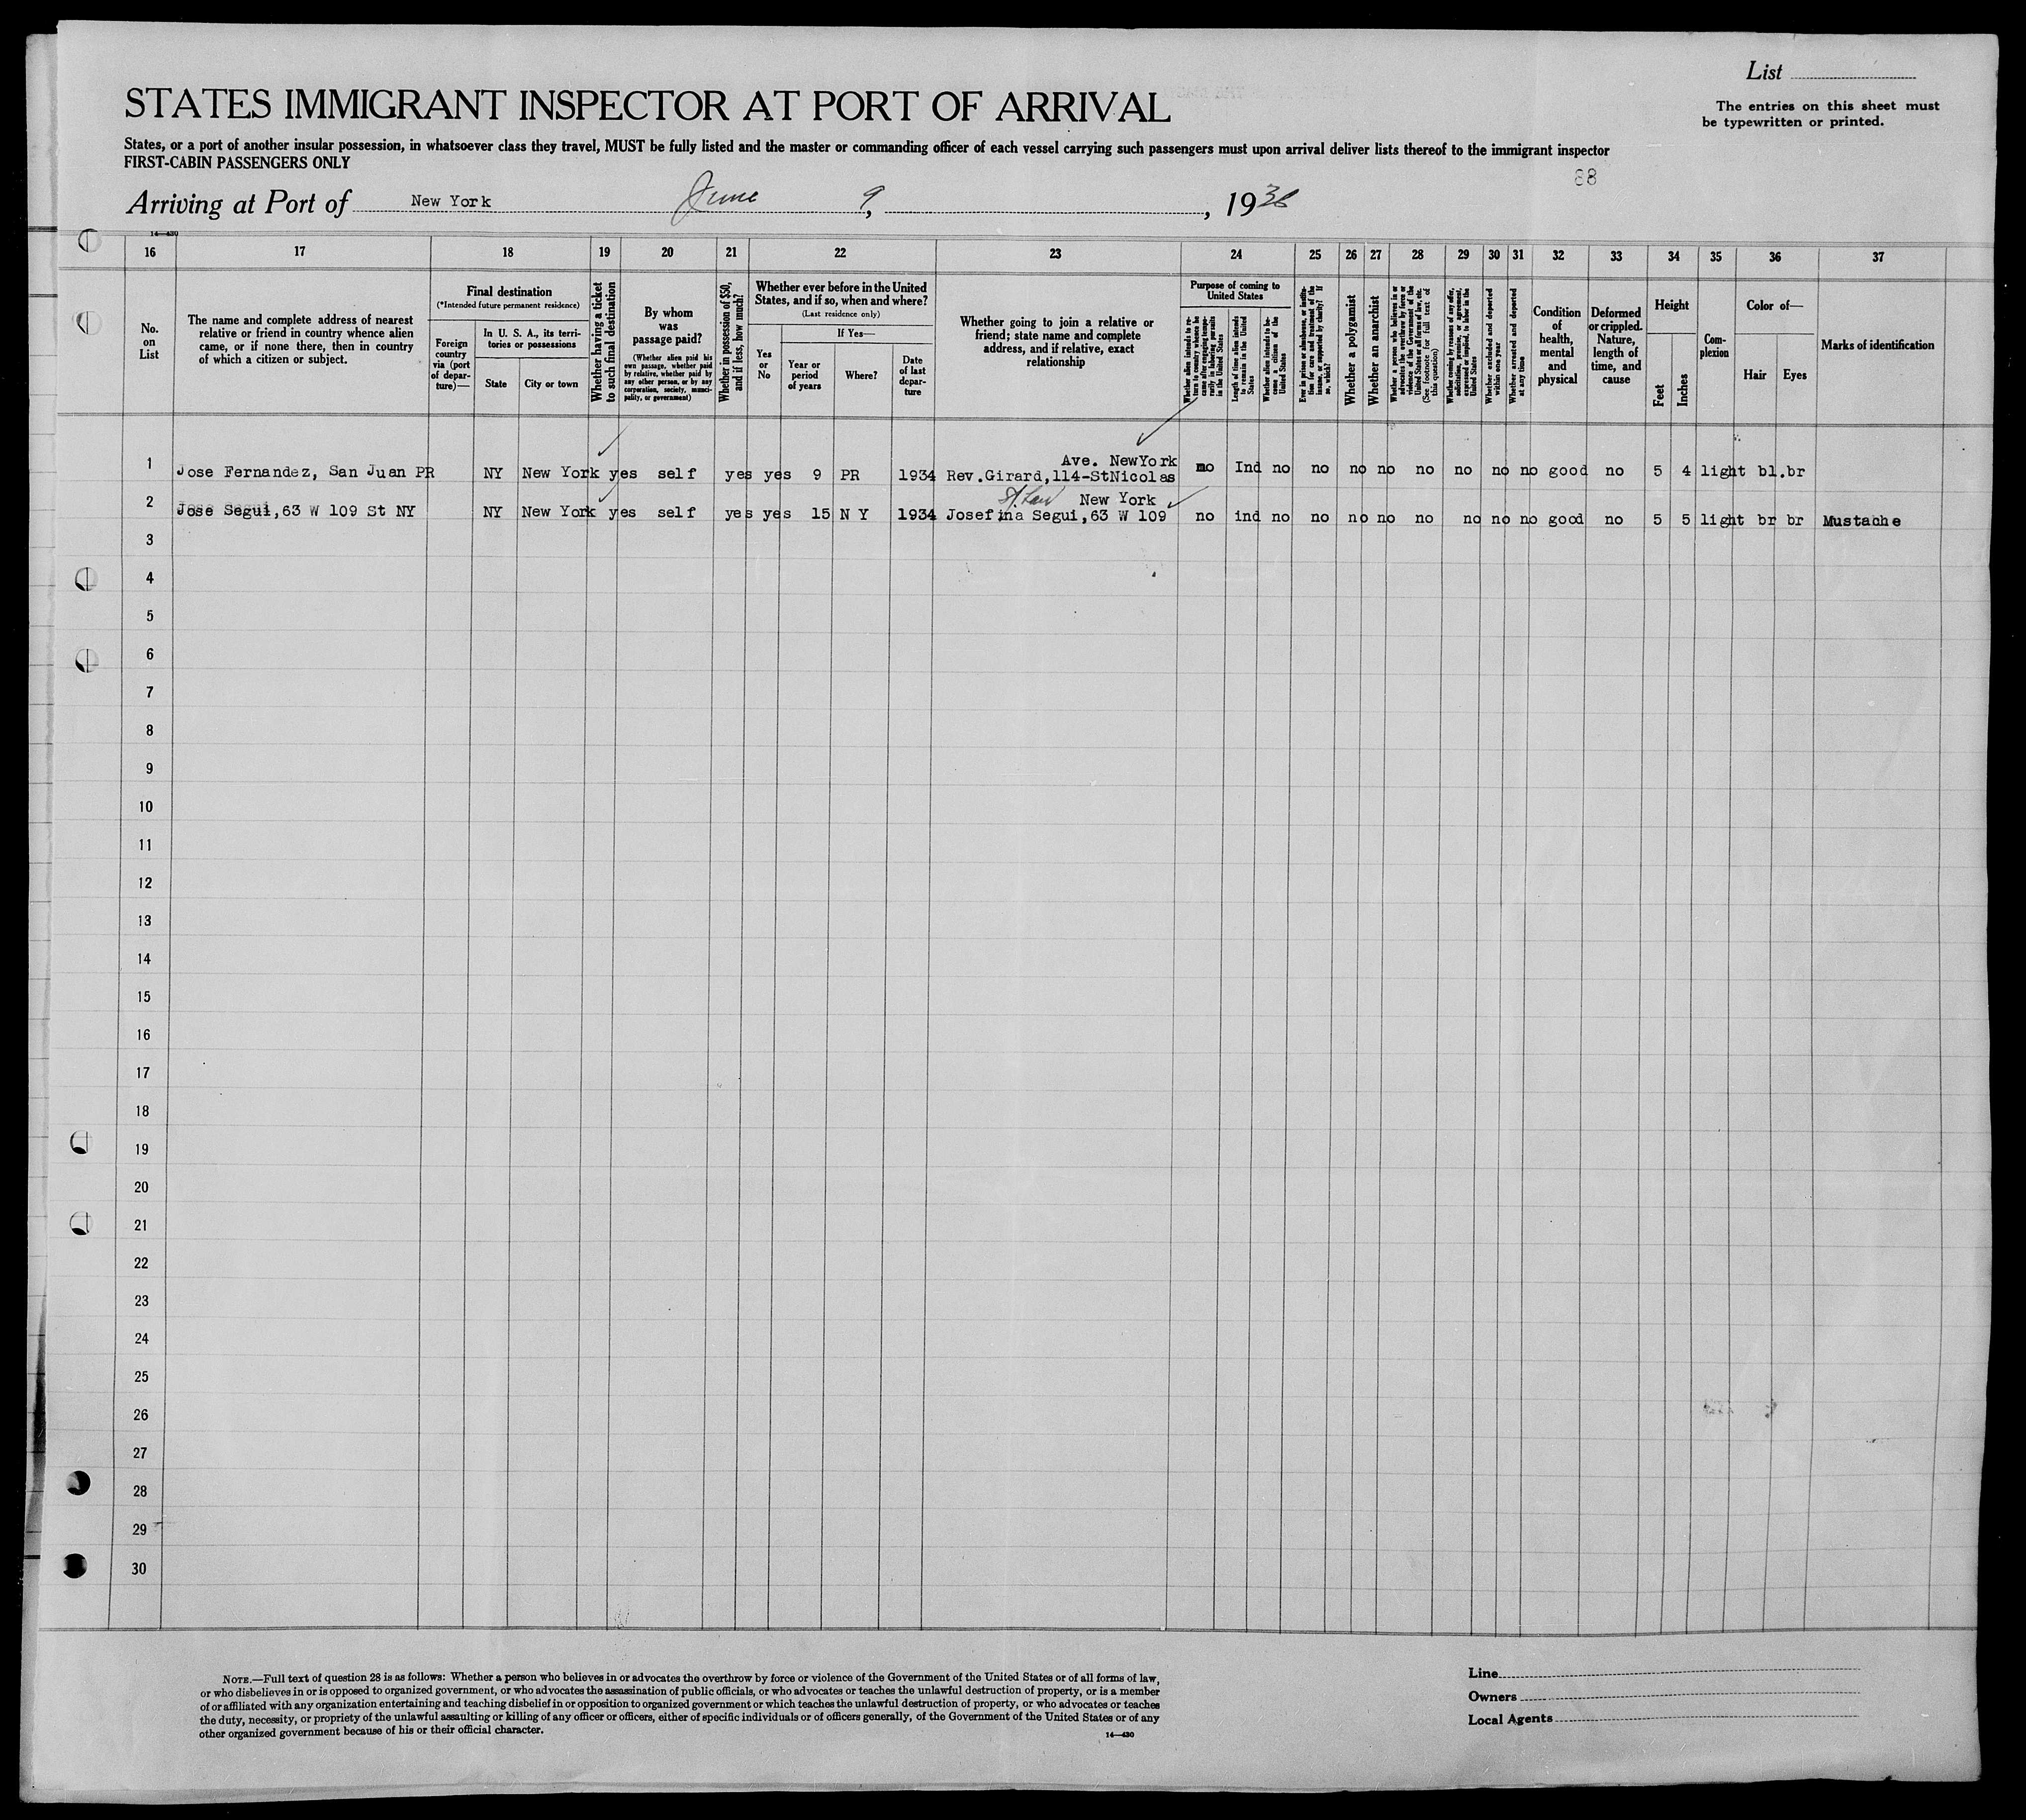 List
STATES IMMIGRANT INSPECTOR AT PORT OF ARRIVAL
The entries on this sheet must
be typewritten or printed.
States, or a port of another insular possession, in whatsoever class they travel, MUST be fully listed and the master or commanding officer of each vessel carrying such passengers must upon arrival deliver lists thereof to the immigrant inspector
FIRST-CABIN PASSENGERS ONLY
88
Arriving at Port of New York June 9, , 1936
14—430
16 17 18 19 20 21 22 23 24 25 26 27 28 29 30 31 32 33 34 35 36 37
No.
on
List
The name and complete address of nearest
relative or friend in country whence alien
came, or if none there, then in country
of which a citizen or subject.
Final destination
(*Intended future permanent residence)
Foreign
country
via (port
of depar-
ture)—
In U. S. A., its terri-
tories or possessions
State
City or town
Whether having a ticket
to such final destination
By whom
was
passage paid?
(Whether alien paid his
own passage, whether paid
by relative, whether paid by
any other person, or by any
corporation, society, munici-
pality, or government)
Whether in possession of $50,
and if less, how much?
Whether ever before in the United
States, and if so, when and where?
(Last residence only)
Yes
or
No
If Yes—
Year or
period
of years
Where?
Date
of last
depar-
ture
Whether going to join a relative or
friend; state name and complete
address, and if relative, exact
relationship
Purpose of coming to
United States
Whether alien intends to re-
turn to country whence he
came after engaging tempo-
rarily in laboring pursuits
in the United States
Length of time alien intends
to remain in the United
States
Whether alien intends to be-
come a citizen of the
United States
Ever in prison or almshouse, or institu-
tion for care and treatment of the
insane, or supported by charity? If
so, which?
Whether a polygamist
Whether an anarchist
Whether a person who believes in or
advocates the overthrow by force or
violence of the Government of the
United States or all forms of law, etc.
(See footnote for full text of
this question)
Whether coming by reasons of any offer,
solicitation, promise, or agreement,
expressed or implied, to labor in the
United States
Whether excluded and deported
within one year
Whether arrested and deported
at any time
Condition
of
health,
mental
and
physical
Deformed
or crippled.
Nature,
length of
time, and
cause
Height
Feet
Inches
Com-
plexion
Color of—
Hair
Eyes
Marks of identification
Ave. NewYork
1 Jose Fernandez, San Juan PR NY New York yes self yes yes 9 PR 1934 Rev.Girard,114-StNicolas no Ind no no no no no no no no good no 5 4 light bl.br
New York
2 Jose Segui,63 W 109 St NY NY New York yes self yes yes 15 N Y 1934 Josefina Segui,63 W 109 no ind no no no no no no no no good no 5 5 light br br Mustache
3
4
5
6
7
8
9
10
11
12
13
14
15
16
17
18
19
20
21
22
23
24
25
26
27
28
29
30
NOTE.—Full text of question 28 is as follows: Whether a person who believes in or advocates the overthrow by force or violence of the Government of the United States or of all forms of law,
or who disbelieves in or is opposed to organized government, or who advocates the assassination of public officials, or who advocates or teaches the unlawful destruction of property, or is a member
of or affiliated with any organization entertaining and teaching disbelief in or opposition to organized government or which teaches the unlawful destruction of property, or who advocates or teaches
the duty, necessity, or propriety of the unlawful assaulting or killing of any officer or officers, either of specific individuals or of officers generally, of the Government of the United States or of any
other organized government because of his or their official character.
14—430
Line
Owners
Local Agents